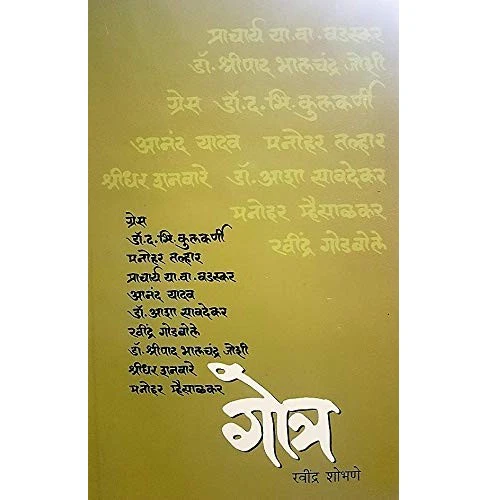 प्राचार्य या. वा. वडस्कर
डॉ. श्रीपाद भालचंद्र जोशी
ग्रेस डॉ. द. भि. कुलकर्णी
आनंद यादव मनोहर तल्हार
श्रीधर शनवारे डॉ. आशा सावदेकर
मनोहर म्हैसाळकर
रवींद्र गोडबोले
ग्रेस
डॉ. द. भि. कुलकर्णी
मनोहर तल्हार
प्राचार्य या. वा. वडस्कर
आनंद यादव
डॉ. आशा सावदेकर
रवींद्र गोडबोले
डॉ. श्रीपाद भालचंद्र जोशी
श्रीधर शनवारे
मनोहर म्हैसाळकर
गोत्र
रवींद्र शोभणे